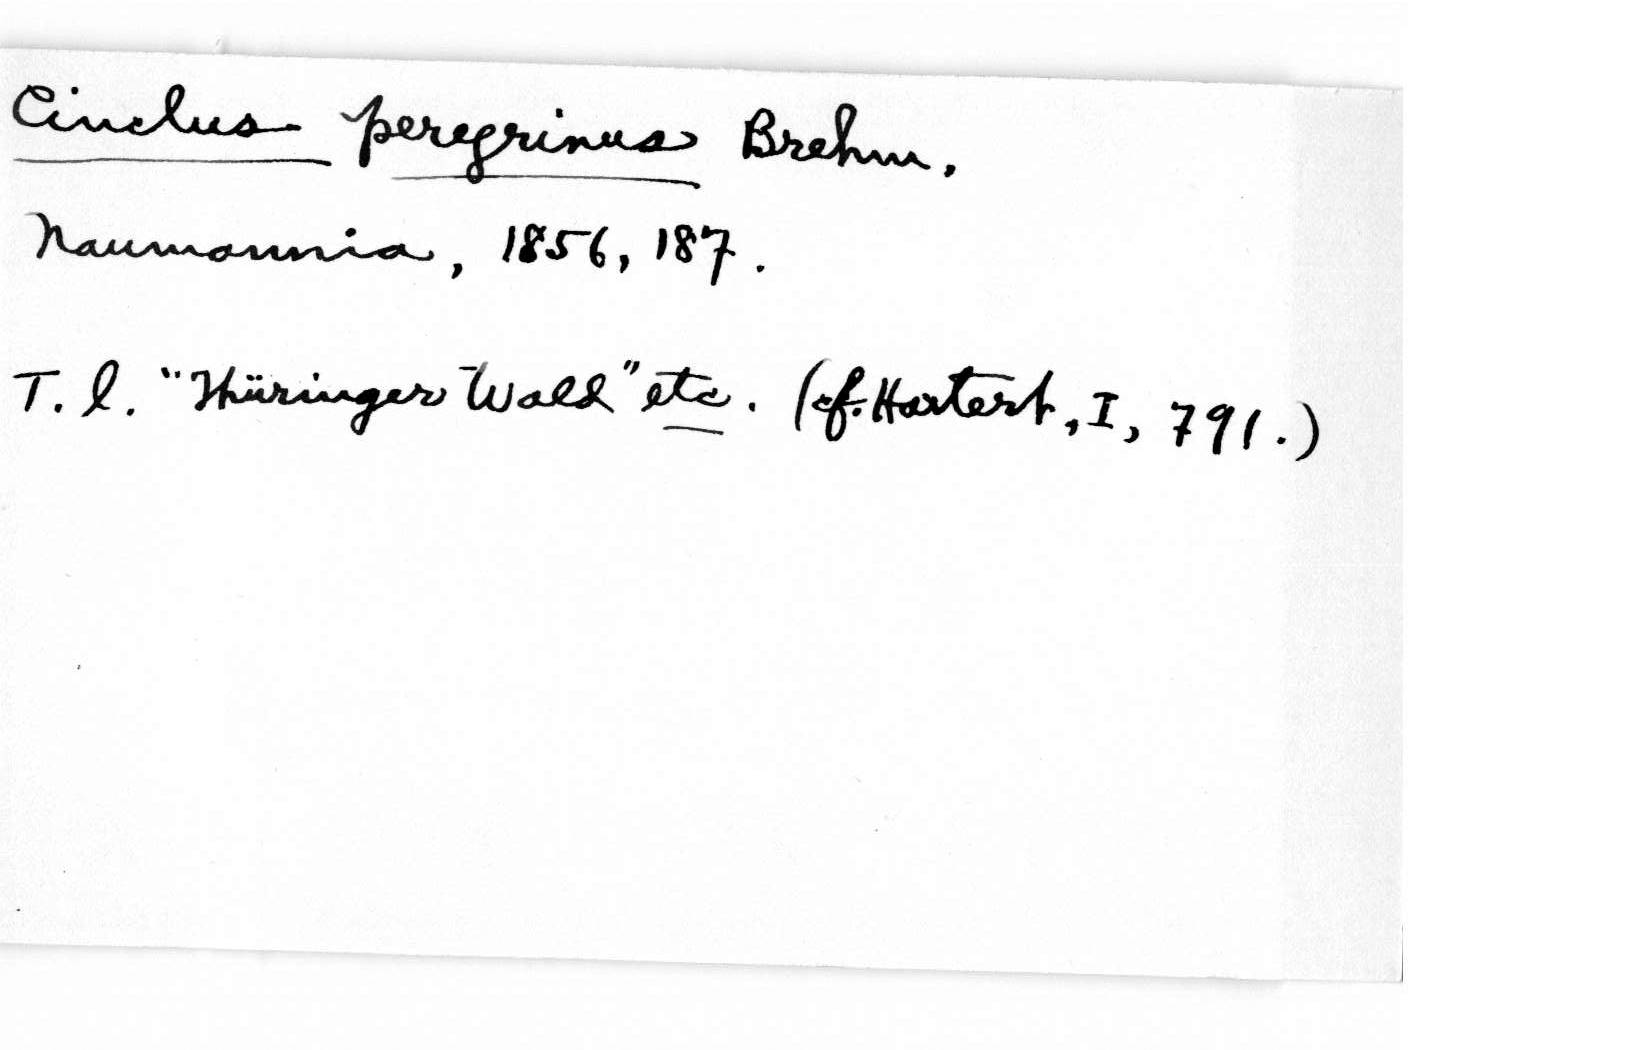 Cinclus peregrinus Brehm,
Naumannia, 1856, 187.
T. l. "Thüringer Wald" etc. (cf. Hartert, I, 791.)